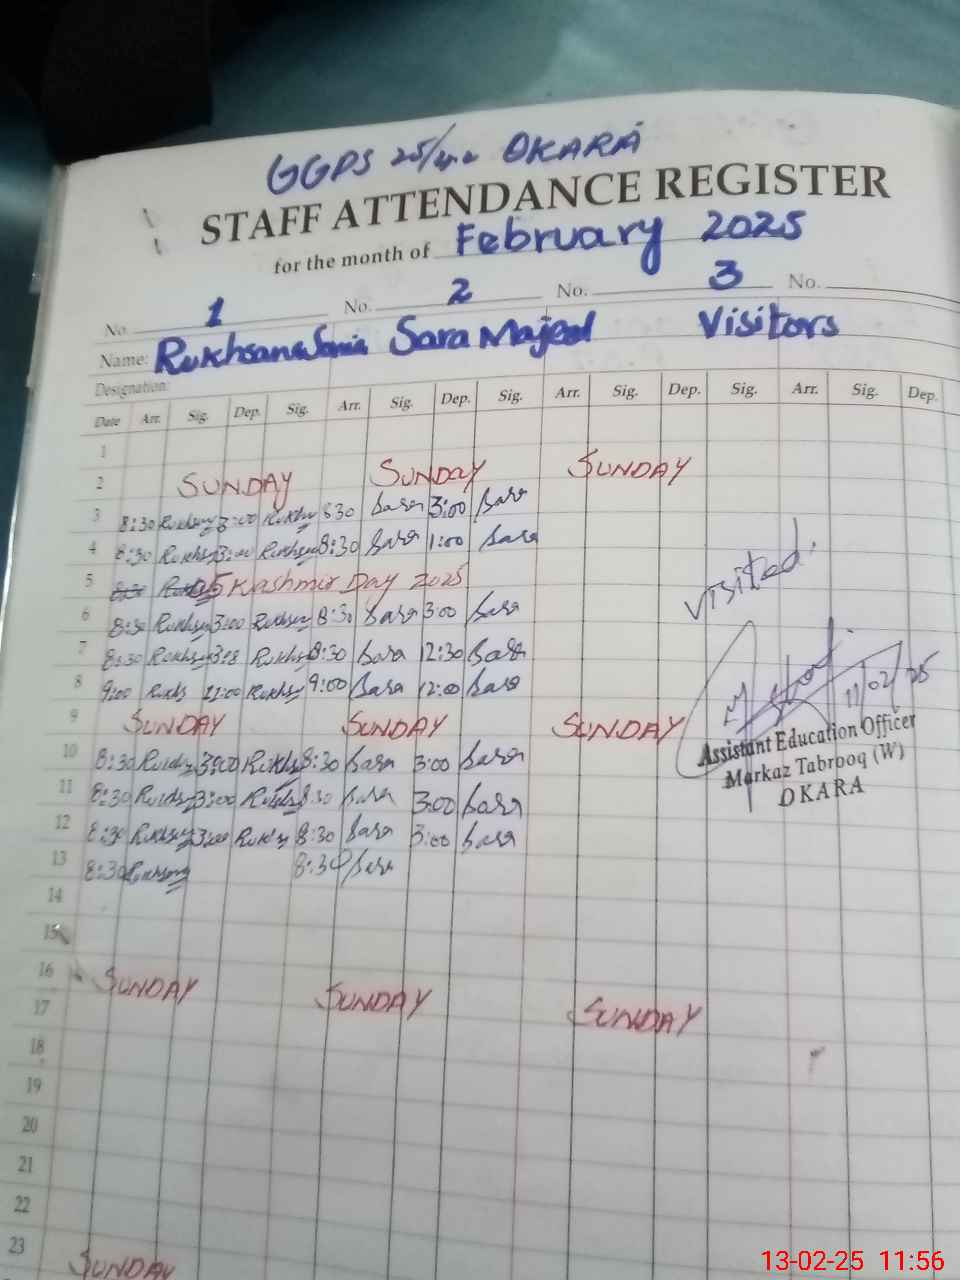 GGPS 25/4.L OKARA
STAFF ATTENDANCE REGISTER
for the month of February 2025
No. 1 No. 2 No. 3 No.
Name: Rukhsana Sara Majeed Visitors
Designation:
Date Arr. Sig. Dep. Sig. Arr. Sig. Dep. Sig. Arr. Sig. Dep. Sig. Arr. Sig. Dep.
1
2 SUNDAY SUNDAY SUNDAY
3 8:30 3:00 8:30 Sara 3:00 Sara
4 8:30 3:00 8:30 Sara 1:00 Sara
5 Kashmir Day 2025
6 8:30 3:00 8:30 Sara 3:00 Sara
7 8:30 8:30 Sara 12:30 Sara
8 9:00 12:00 9:00 Sara 12:00 Sara
9 SUNDAY SUNDAY SUNDAY
10 8:30 3:00 8:30 Sara 3:00 Sara
11 8:30 3:00 8:30 Sara 3:00 Sara
12 8:30 3:00 8:30 Sara 3:00 Sara
13 8:30 8:30 Sara
14
15
16 SUNDAY SUNDAY SUNDAY
17
18
19
20
21
22
23 SUNDAY
visited.
11/02/25
Assistant Education Officer
Markaz Tabrooq (W)
OKARA
13-02-25 11:56